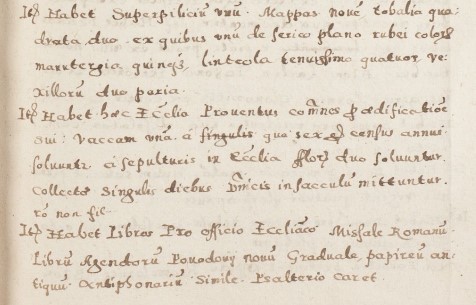 Itē Habet Superpiliciū vnū. Mappas novē tobalia qua:
drata duo. ex quibus vnū de serico plano rubei coloris
manutergia quinq3. linteola tenuissimo quatuor ve:
xillorū duo paria.
Itē Habet hæc Ecclia Proventus cōmnes p ædificatiōe
sui: Vaccam vnā. â singulis quo sex census annui
soluuntr. â sepultueis in Ecclia duo soluuntur.
Collecta singulis diebus Dn̄icis in sacculū mittuntur.
non fit.
Itē Habet Libros Pro officio Eccliāco Missale Romanū.
Librū Agendorū Povodovÿ novū Graduale, papireū an:
tiquū. Antiphonariū Simile. Psalterio caret.